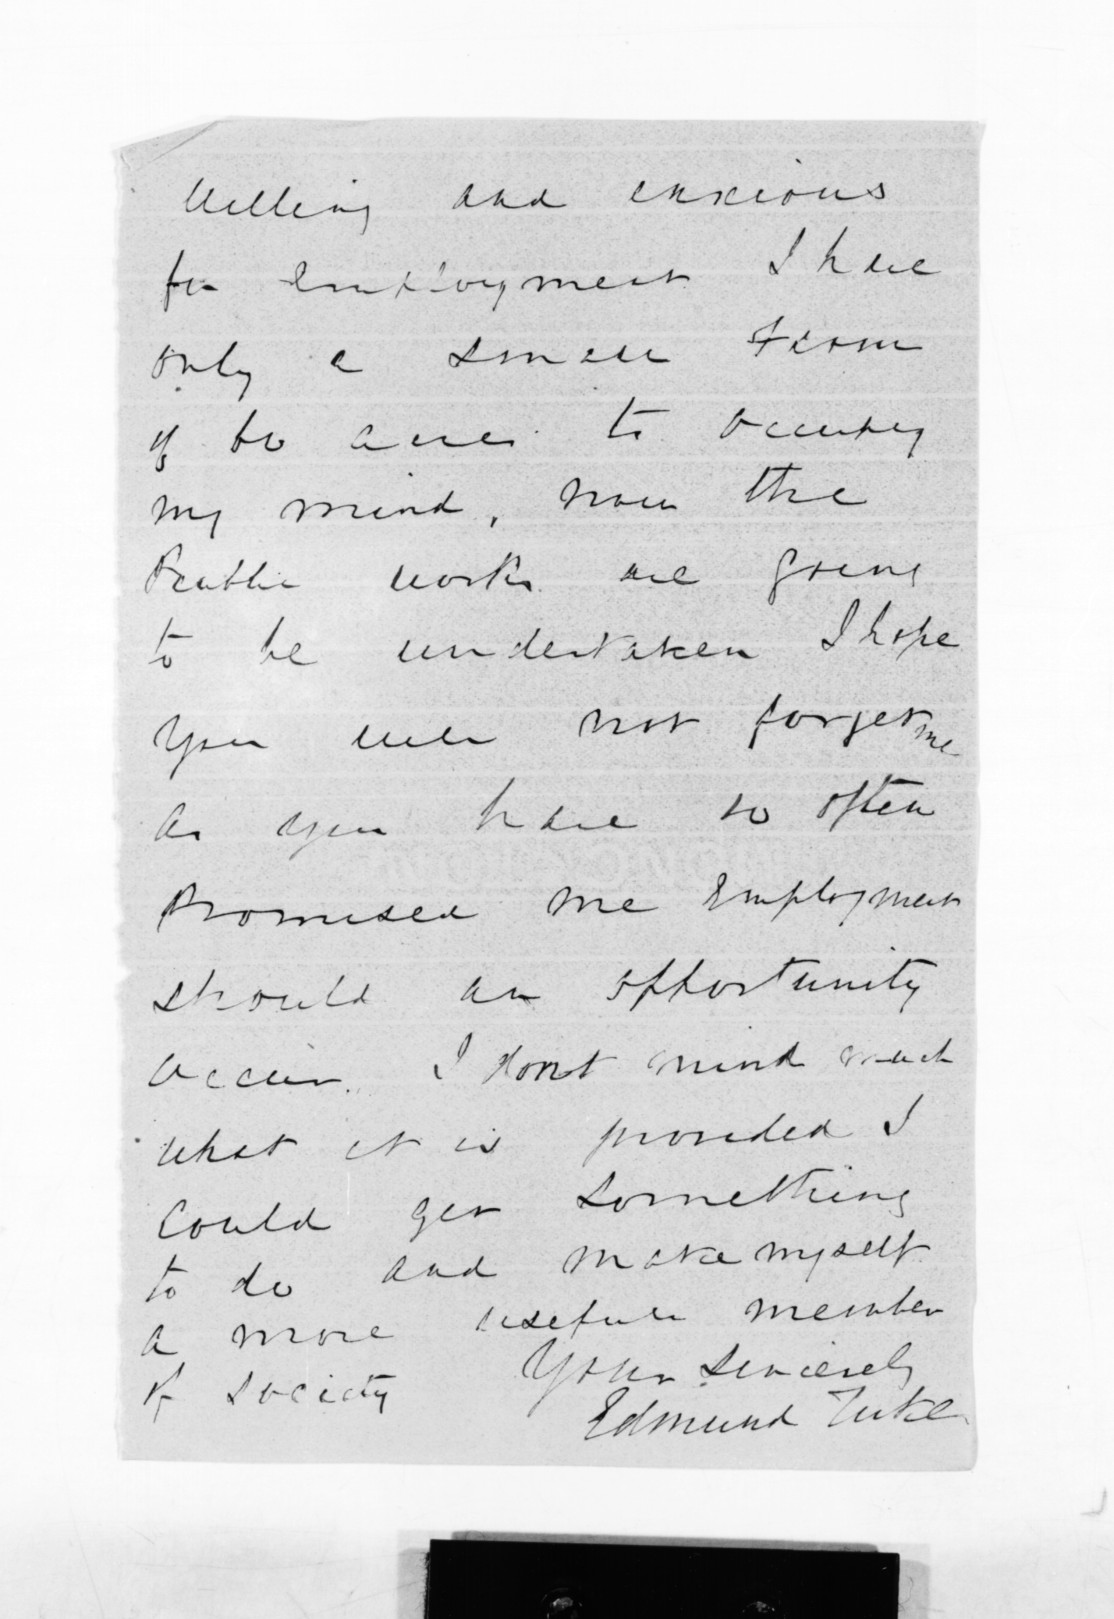 Willing and anxious
for Employment I have
only a small Farm
of 60 acres to occupy
my mind, now the
Public works are going
to be undertaken I hope
you will not forget me
as you have so often
Promised me Employment
should an opportunity
occur. I don't mind much
what it is provided I
could get something
to do and make myself
a more usefull member
of society Yours sincerely
Edmund Tuke